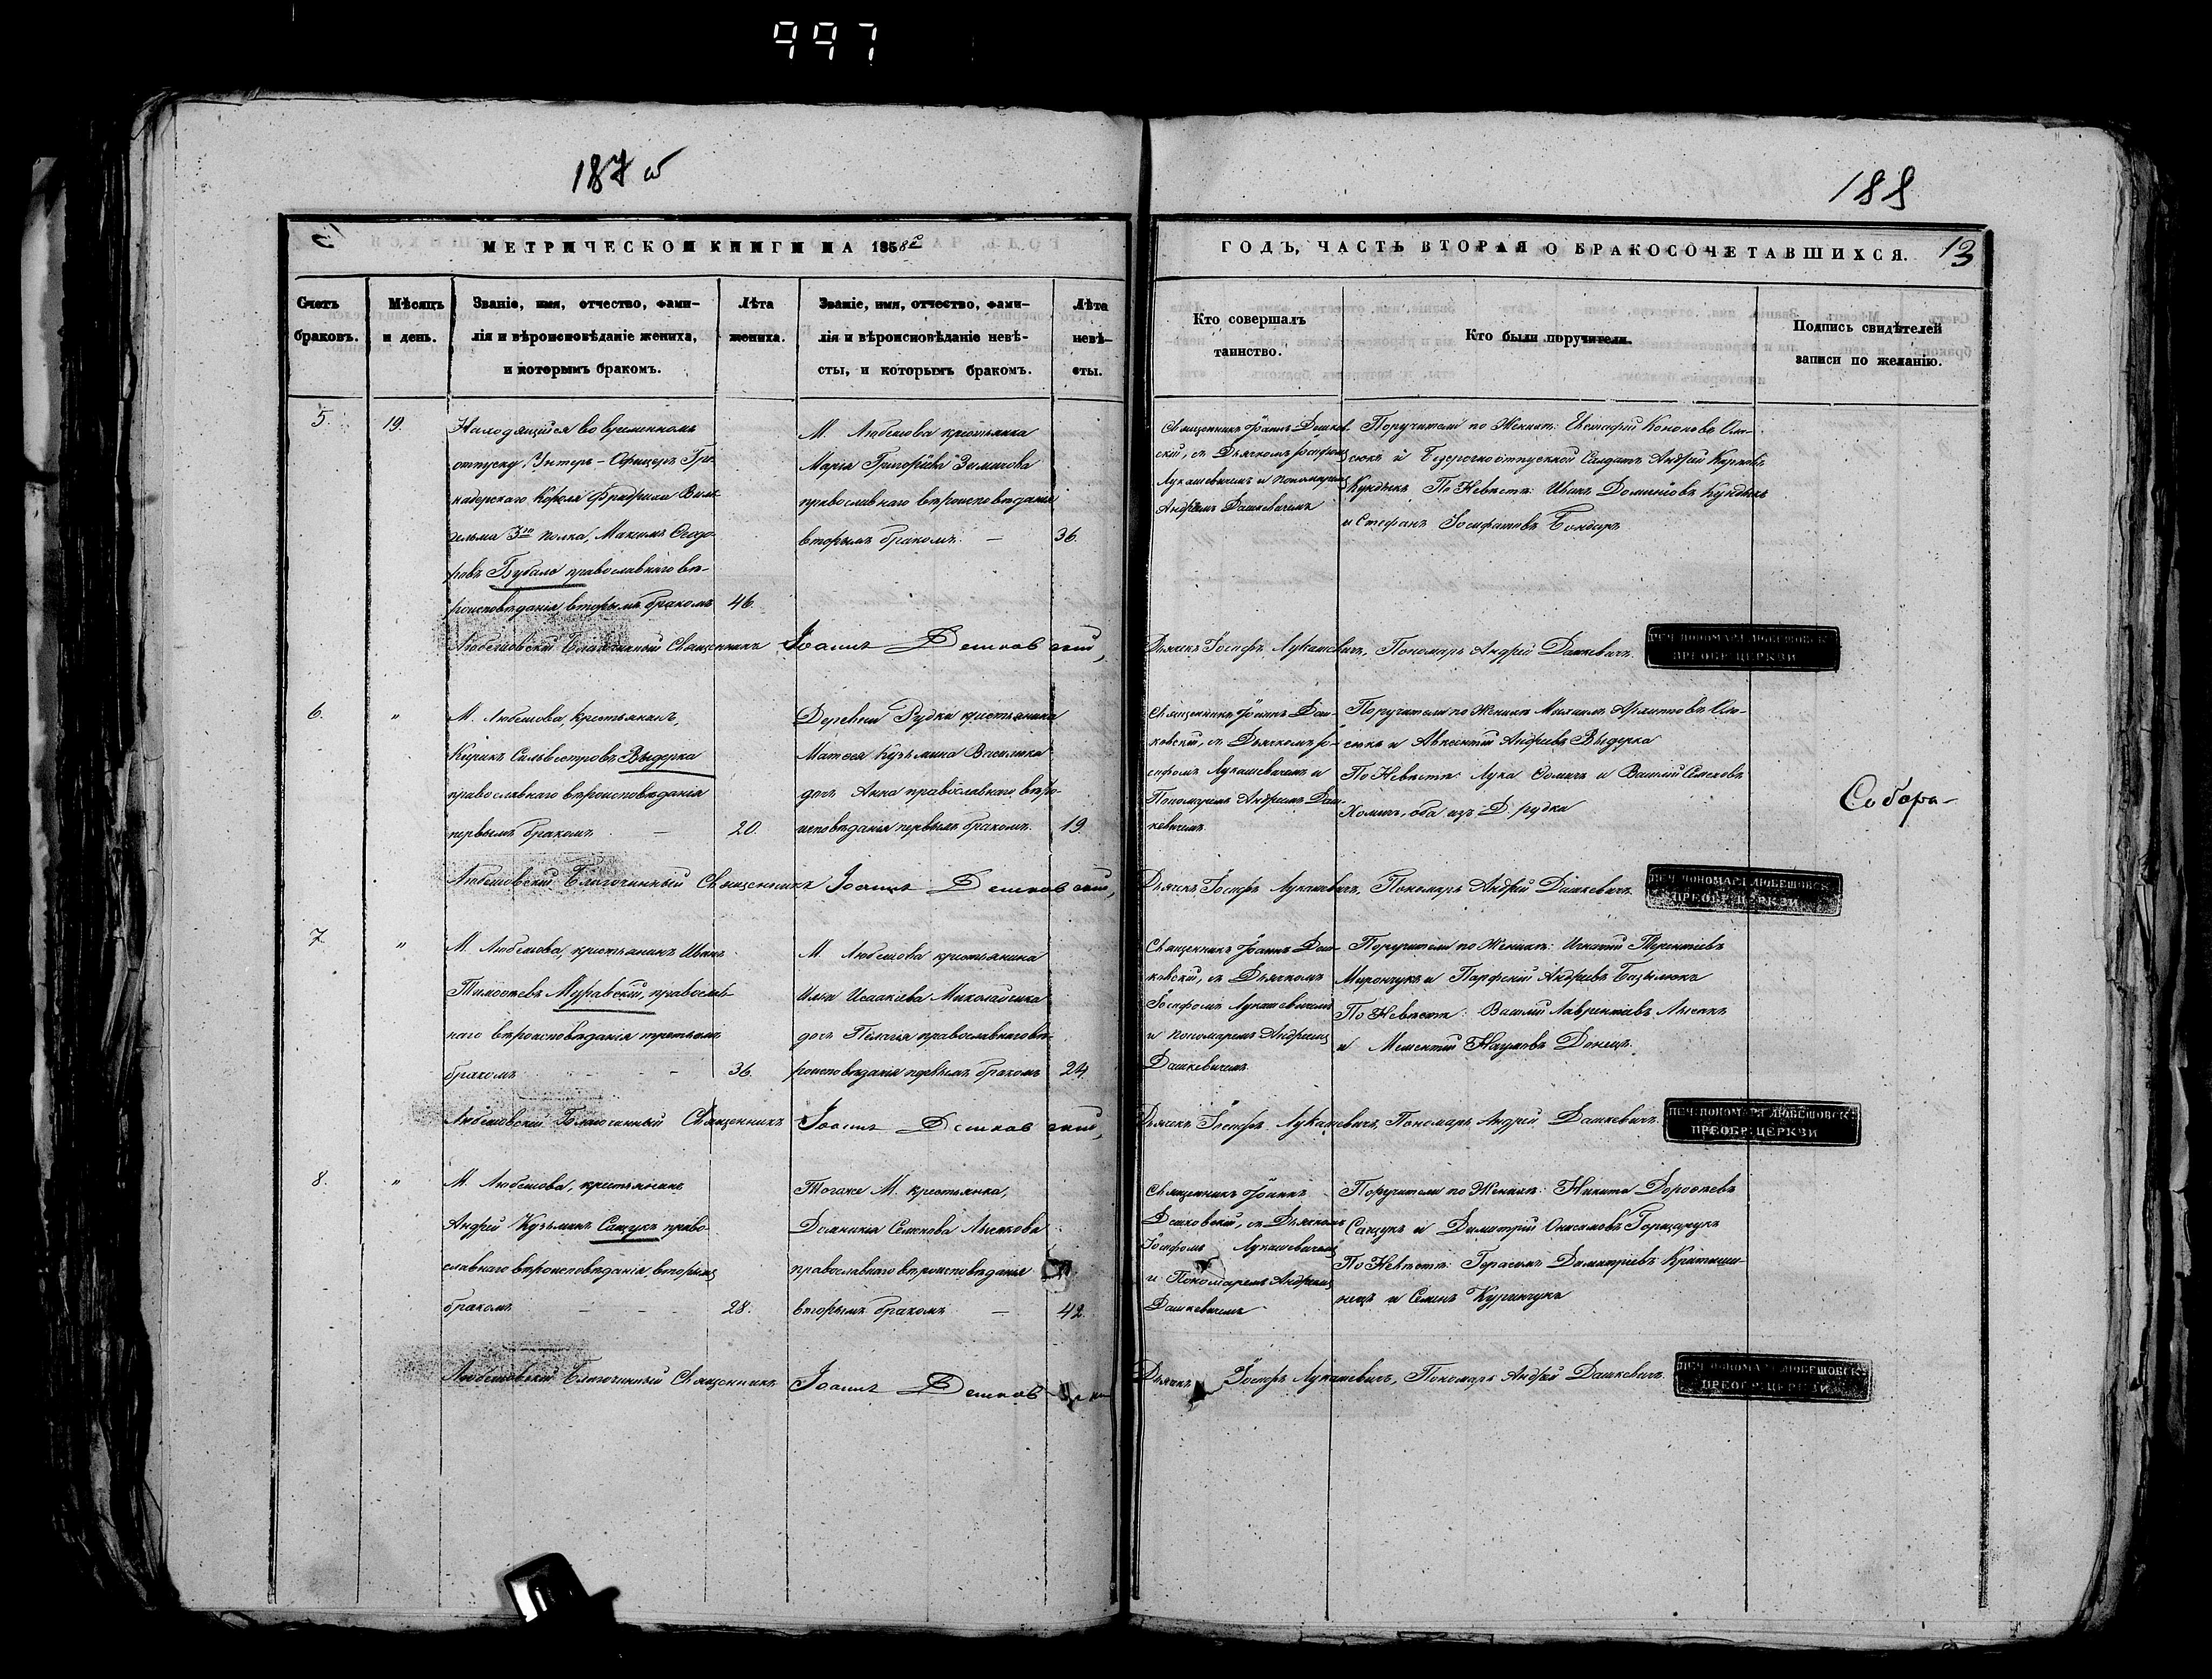 997
187 об
188
МЕТРИЧЕСКОЙ КНИГИ НА 1858й
ГОДЪ, ЧАСТЬ ВТОРАЯ О БРАКОСОЧЕТАВШИХСЯ.
13
Счетъ
браковъ.
Мѣсяцъ
и день.
Званіе, имя, отчество, фами-
лія и вѣроисповѣданіе жениха,
и которымъ бракомъ.
Лѣта
жениха.
Званіе, имя, отчество, фами-
лія и вѣроисповѣданіе невѣ-
сты, и которымъ бракомъ.
Лѣта
невѣ-
сты.
Кто совершалъ
таинство.
Кто были поручители.
Подпись свидѣтелей
записи по желанію.
5.
19.
Находящійся во временномъ
отпуску Унтеръ-Офицеръ Гре-
надерскаго Короля Фридриха Виль-
гельма 3го полка, Максимъ Ѳеодо-
ровъ Бубало православнаго вѣ-
роисповѣданія вторымъ бракомъ
46.
М. Любешова крестьянка
Марія Григоріева
православнаго вѣроисповѣданія
вторымъ бракомъ. —
36.
Священникъ Іоаннъ Дешков-
скій, съ Дьячкомъ Іосифомъ
Лукашевичемъ и пономаремъ
Андреемъ Дашкевичемъ
Поручители по Женихѣ: Евстафій Кононовъ Оли-
сюкъ и Безсрочноотпускной Солдатъ Андрей Карповъ
Кундикъ По Невѣстѣ: Иванъ Доминіовъ Кундикъ
и Стефанъ Іосифатовъ Бондарь
Любешовскій Благочинный Священникъ Іоаннъ Дешковскій,
Дьячекъ Іосифъ Лукашевичъ, Пономарь Андрей Дашкевичъ.
ПЕЧ. ПОНОМАРЯ ЛЮБЕШОВСК.
ПРЕОБР. ЦЕРКВИ
6.
"
М. Любешова, крестьянинъ,
Кирикъ Сильвестровъ Выдерка
православнаго вѣроисповѣданія
первымъ бракомъ. —
20.
Деревни Рудки крестьянина
Матѳея Кузьмина
дочь Анна православнаго вѣро-
исповѣданія первымъ бракомъ.
19.
Священникъ Іоаннъ Деш-
ковскій, съ Дьячкомъ Іо-
сифомъ Лукашевичемъ и
Пономаремъ Андреемъ Даш-
кевичемъ.
Поручители по Женихѣ Михаилъ Архиповъ Оли-
сюкъ и Авксентій Андреевъ Выдерка
По Невѣстѣ: Лука Ѳомичъ и Василій Семеновъ
Хомичъ, оба изъ Д. рудки
Соборъ-
Любешовскій Благочинный Священникъ Іоаннъ Дешковскій,
Дьячекъ Іосифъ Лукашевичъ, Пономарь Андрей Дашкевичъ.
ПЕЧ. ПОНОМАРЯ ЛЮБЕШОВСК.
ПРЕОБР. ЦЕРКВИ
7
"
М. Любешова, крестьянинъ Иванъ
Тимоѳеевъ Муравскій, православ-
наго вѣроисповѣданія третьимъ
бракомъ — —
36.
М. Любешова крестьянина
Ильи Исаакіева Миколайчика
дочь Пелагія православнаго вѣ-
роисповѣданія первымъ бракомъ
24.
Священникъ Іоаннъ Деш-
ковскій, съ Дьячкомъ
Іосифомъ Лукашевичемъ
и пономаремъ Андреемъ
Дашкевичемъ.
Поручители по Женихѣ: Игнатій Терентіевъ
Мирончукъ и Парфеній Андреевъ Базылюкъ
По Невѣстѣ: Василій Лаврентіевъ Лысакъ
и Мелентій Наумовъ Донецъ.
Любешовскій Благочинный Священникъ Іоаннъ Дешковскій,
Дьячекъ Іосифъ Лукашевичъ, Пономарь Андрей Дашкевичъ.
ПЕЧ. ПОНОМАРЯ ЛЮБЕШОВСК.
ПРЕОБР. ЦЕРКВИ
8.
"
М. Любешова, крестьянинъ
Андрей Кузьминъ Сацукъ право-
славнаго вѣроисповѣданія вторымъ
бракомъ — — —
28.
Тогоже М. крестьянка,
Домникія Семенова Лысакова
православнаго вѣроисповѣданія
вторымъ бракомъ —
42.
Священникъ Іоаннъ
Дешковскій, съ Дьячкомъ
Іосифомъ Лукашевичемъ
и Пономаремъ Андреемъ
Дашкевичемъ
Поручители по Женихѣ: Никита Дороѳеевъ
Сацукъ и Димитрій Онисимовъ
По Невѣстѣ: Герасимъ Димитріевъ
и Семенъ Куринчукъ
Любешовскій Благочинный Священникъ Іоаннъ Дешковскій
Дьячекъ Іосифъ Лукашевичъ, Пономарь Андрей Дашкевичъ.
ПЕЧ. ПОНОМАРЯ ЛЮБЕШОВСК.
ПРЕОБР. ЦЕРКВИ